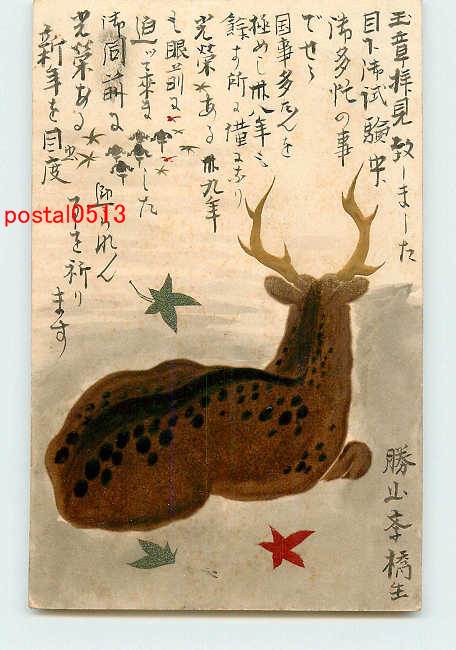 玉章拝見致しました
目下御試験中
御多忙の事
でせう
国事多たんを
極めし卅八年も
余す所に僅になり
光栄ある卅九年
も眼前に
迫って来ました
御同前に
光栄ある
新年を目度
迎られん
事を祈り
ます
勝山
橋生
postal0513